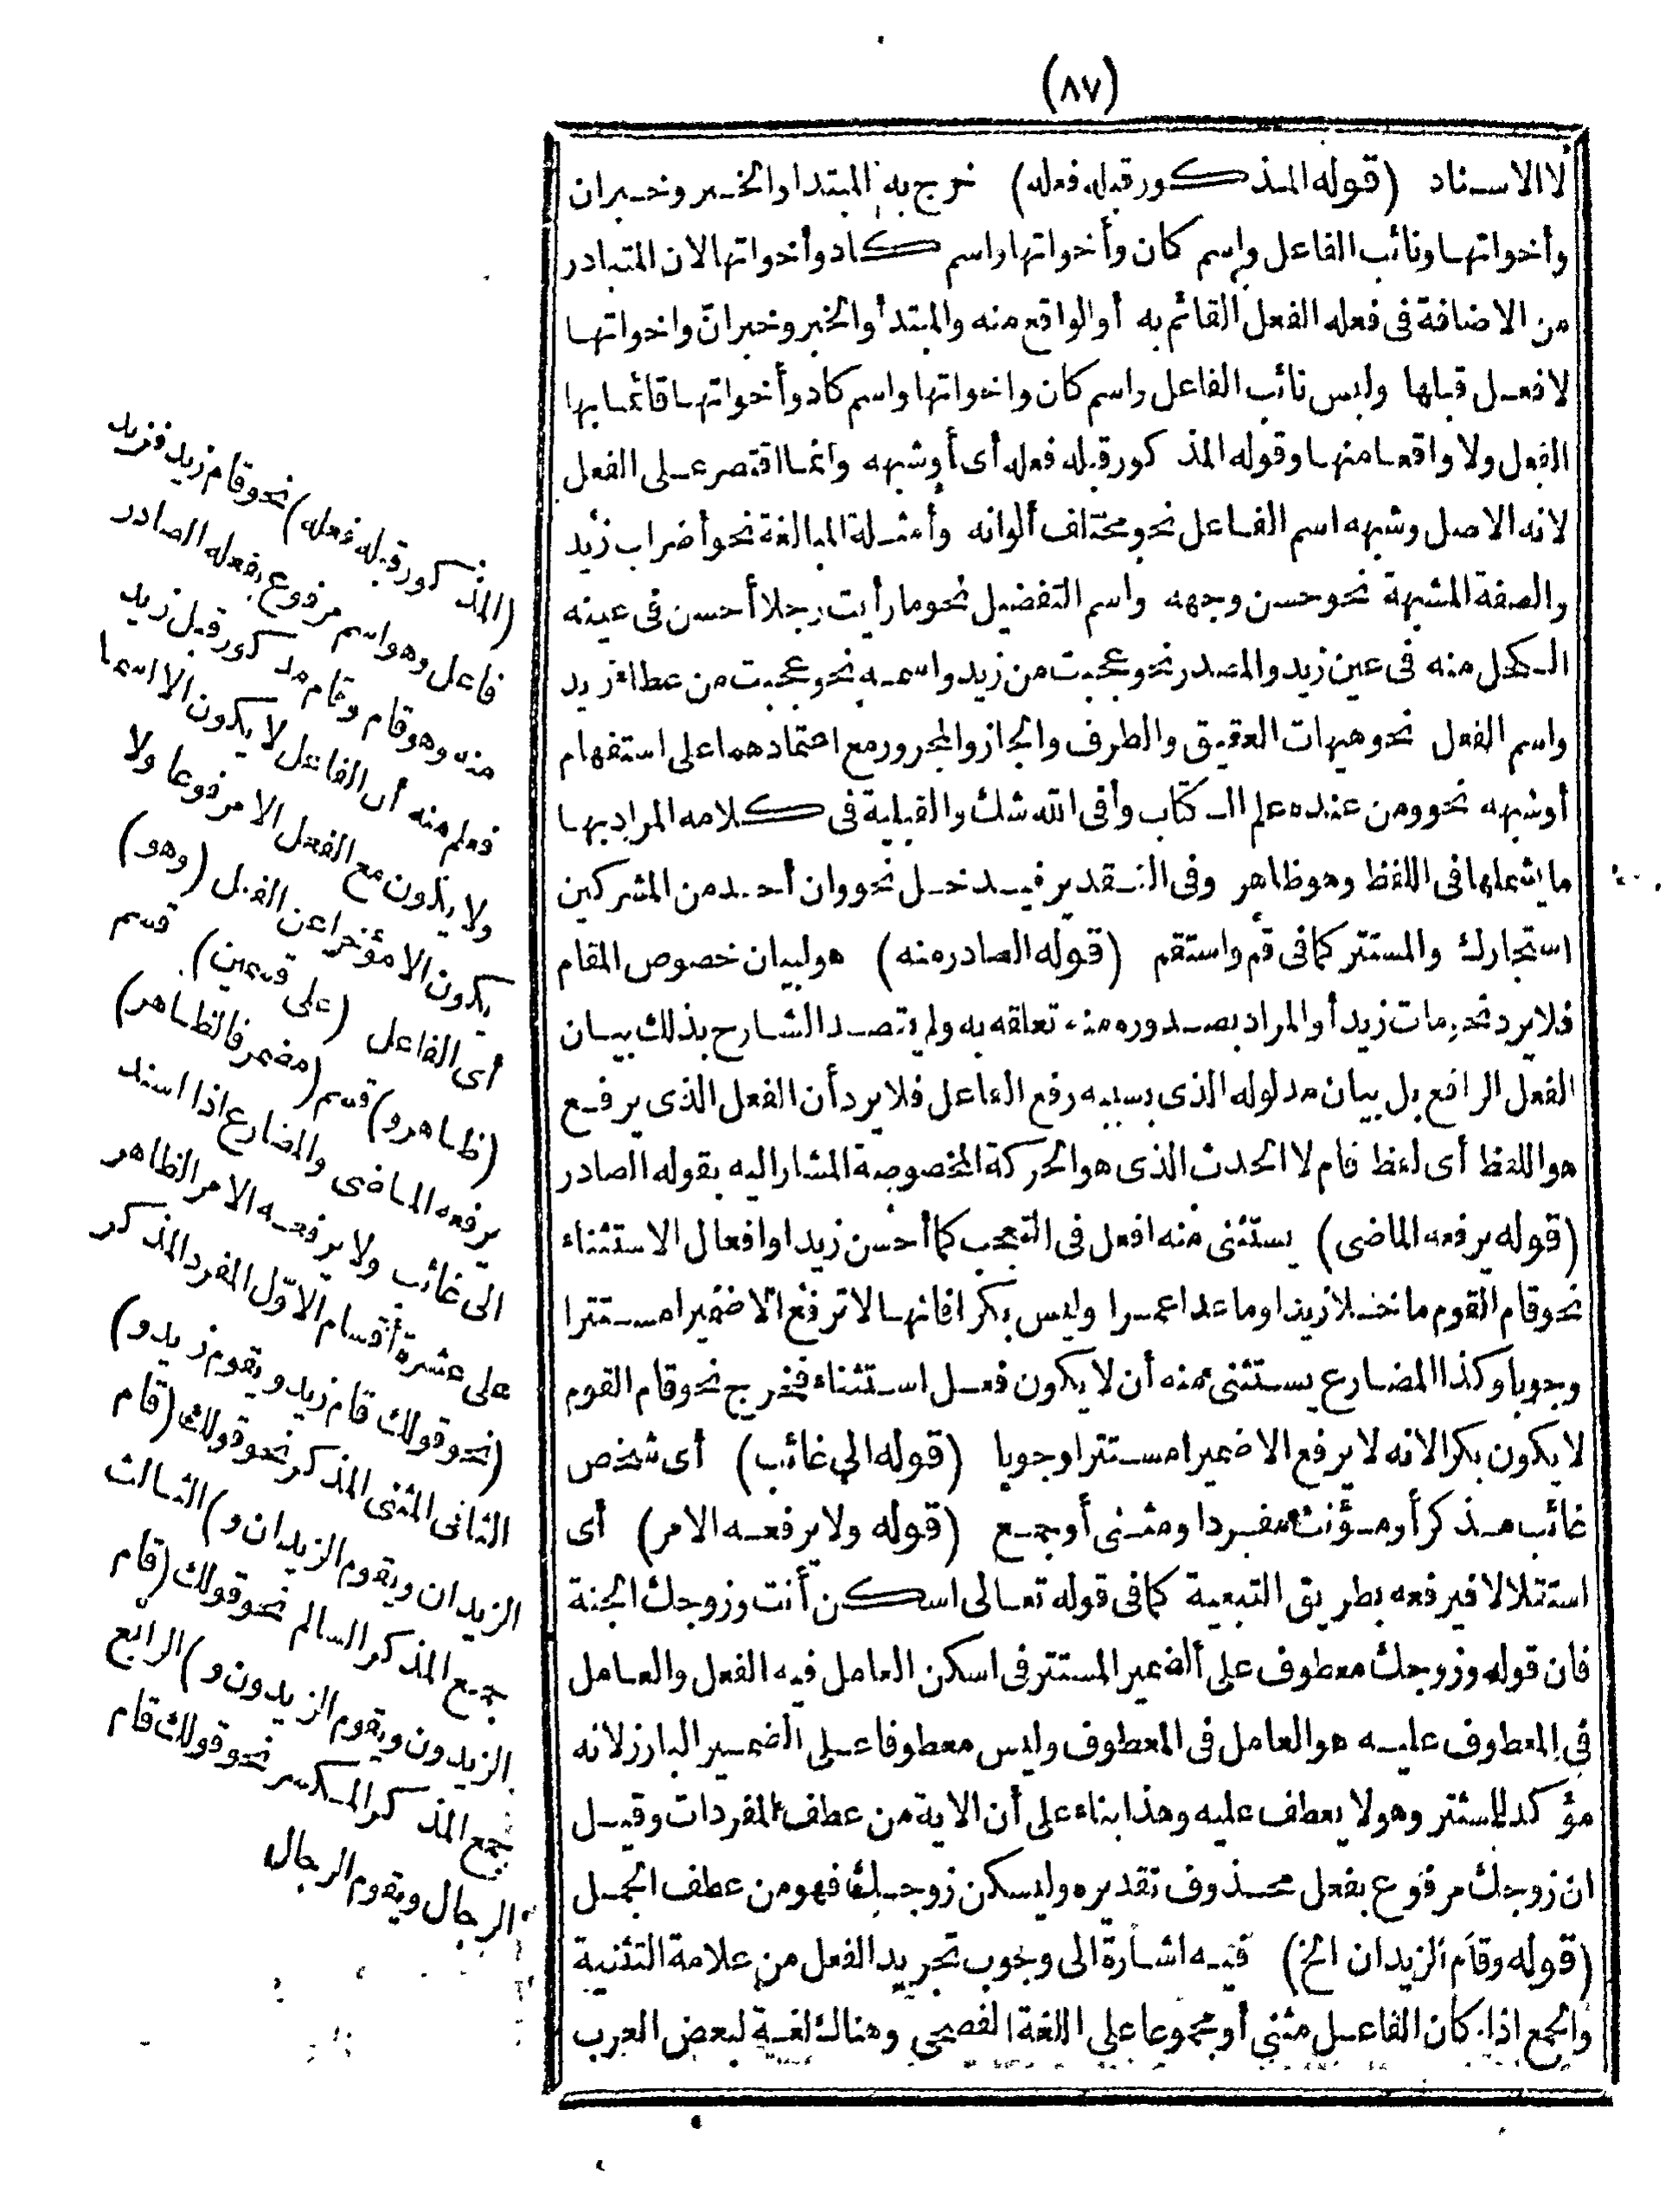 (٨٧)
لا الاسناد (قوله المذكور قبله فعله) خرج به المبتدا والخبر وخبران
وأخواتها ونائب الفاعل واسم كان وأخواتها واسم كاد وأخواتها لان المتبادر
من الاضافة فى فعله الفعل القائم به أو الواقع منه والمبتدأ والخبر وخبران واخواتها
لا فعل قبلها وليس نائب الفاعل واسم كان واخواتها واسم كاد وأخواتها قائما بها
الفعل ولا واقعا منها وقوله المذكور قبله فعله أى أو شبهه وانما اقتصر على الفعل
لانه الاصل وشبهه اسم الفاعل نحو مختلف ألوانه وأمثلة المبالغة نحو أضراب زيد
والصفة المشبهة نحو حسن وجهه واسم التفضيل نحو ما رأيت رجلا أحسن فى عينه
الكحل منه فى عين زيد والمصدر نحو عجبت من زيد واسمه نحو عجبت من عطاء زيد
واسم الفعل نحو هيهات العقيق والظرف والجار والمجرور مع اعتمادهما على استفهام
أو شبهه نحو ومن عنده علم الكتاب وأفى الله شك والقبلية فى كلامه المراد بها
ما يشملها فى اللفظ وهو ظاهر وفى التقدير فيدخل نحو وان أحد من المشركين
استجارك والمستتر كما فى قم واستقم (قوله الصادر منه) هو لبيان خصوص المقام
فلا يرد نحو مات زيد أو المراد بصدوره منه تعلقه به ولم يقصد الشارح بذلك بيان
الفعل الرافع بل بيان مدلوله الذى بسببه رفع الفاعل فلا يرد أن الفعل الذى يرفع
هو اللفظ أى لفظ قام لا الحدث الذى هو الحركة المخصوصة المشار اليه بقوله الصادر
(قوله يرفعه الماضى) يستثنى منه افعل فى التعجب كما أحسن زيدا وافعال الاستثناء
نحو قام القوم ما خلا زيدا وما عدا عمرا وليس بكرا فانها لا ترفع الا ضميرا مستترا
وجوبا وكذا المضارع يستثنى منه أن لا يكون فعل استثناء فيخرج نحو قام القوم
لا يكون بكرا لانه لا يرفع الا ضميرا مستترا وجوبا (قوله الى غائب) أى شخص
غائب مذكر أو مؤنث مفردا ومثنى أو جمع (قوله ولا يرفعه الامر) أى
استقلالا فيرفعه بطريق التبعية كما فى قوله تعالى اسكن أنت وزوجك الجنة
فان قوله وزوجك معطوف على الضمير المستتر فى اسكن العامل فيه الفعل والعامل
فى المعطوف عليه هو العامل فى المعطوف وليس معطوفا على الضمير البارز لانه
مؤكد للمستتر وهو لا يعطف عليه وهذا بناء على أن الاية من عطف المفردات وقيل
ان زوجك مرفوع بفعل محذوف تقديره وليسكن زوجك فهو من عطف الجمل
(قوله وقام الزيدان الخ) فيه اشارة الى وجوب تجريد الفعل من علامة التثنية
والجمع اذا كان الفاعل مثنى أو مجموعا على اللغة الفصحى وهناك لغة لبعض العرب
(المذكور قبله فعله) نحو قام زيد فزيد
فاعل وهو اسم مرفوع بفعله الصادر
منه وهو قام وقام مذكور قبل زيد
فعلم منه أن الفاعل لا يكون الا اسما
ولا يكون مع الفعل الا مرفوعا ولا
يكون الا مؤخرا عن الفعل (وهو)
أى الفاعل (على قسمين) قسم
(ظاهر و) قسم (مضمر فالظاهر)
يرفعه الماضى والمضارع اذا اسند
الى غائب ولا يرفعه الامر الظاهر
على عشرة أقسام الاوّل المفرد المذكر
(نحو قولك قام زيد ويقوم زيد و)
الثانى المثنى المذكر نحو قولك (قام
الزيدان ويقوم الزيدان و) الثالث
جمع المذكر السالم نحو قولك (قام
الزيدون ويقوم الزيدون و) الرابع
جمع المذكر المكسر نحو قولك قام
الرجال ويقوم الرجال